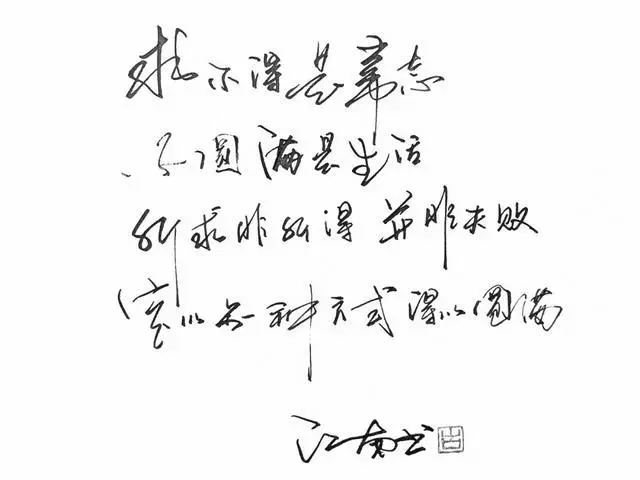 求不得是常态
不圆满是生活
所求非所得 并非失败
它以另一种方式得以圆满
江南书